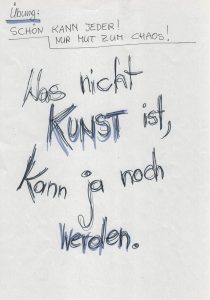 Übung:
SCHÖN KANN JEDER!
NUR MUT ZUM CHAOS!
Was nicht
KUNST ist,
kann ja noch
werden.